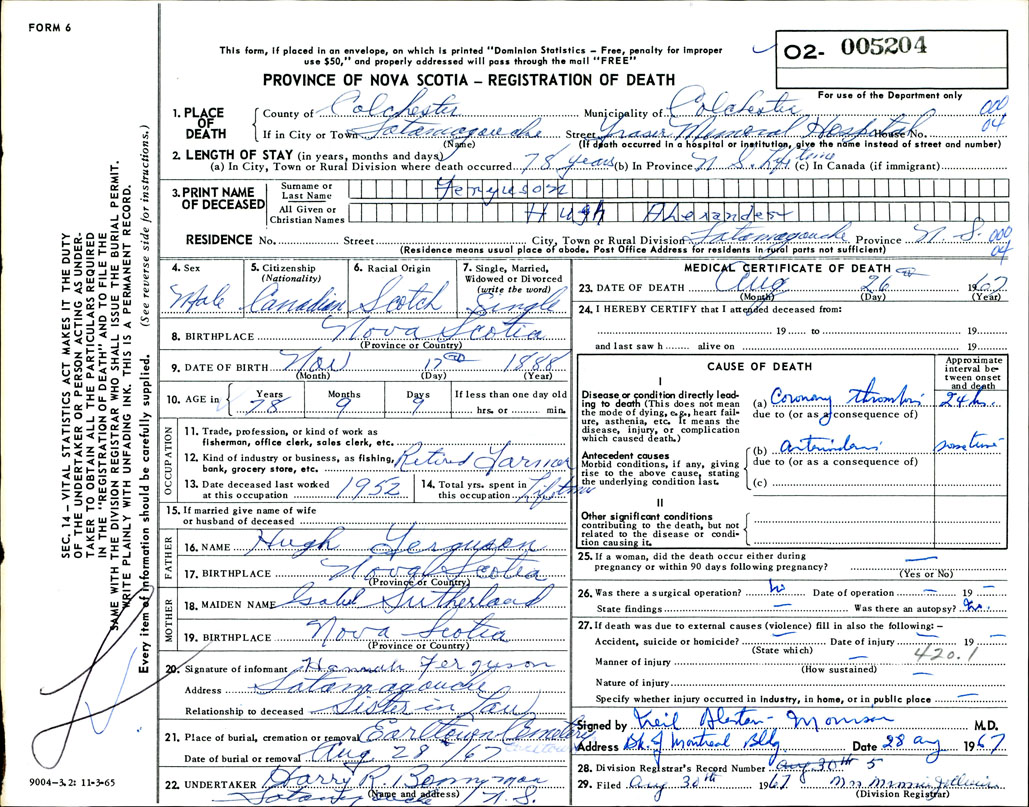 FORM 6
This form, if placed in an envelope, on which is printed "Dominion Statistics – Free, penalty for improper
use $50," and properly addressed will pass through the mail "FREE"
O2- 005204
PROVINCE OF NOVA SCOTIA – REGISTRATION OF DEATH
For use of the Department only
1. PLACE OF DEATH
County of Colchester Municipality of Colchester 000
If in City or Town Tatamagouche Street Fraser Memorial Hospital House No. 04
(Name) (If death occurred in a hospital or institution, give the name instead of street and number)
2. LENGTH OF STAY (in years, months and days)
(a) In City, Town or Rural Division where death occurred 78 years (b) In Province N S. Lifetime (c) In Canada (if immigrant)
3. PRINT NAME OF DECEASED
Surname or Last Name Ferguson
All Given or Christian Names Hugh Alexander
RESIDENCE No. Street City, Town or Rural Division Tatamagouche Province N S 000
(Residence means usual place of abode. Post Office Address for residents in rural parts not sufficient) 04
4. Sex 5. Citizenship (Nationality) 6. Racial Origin 7. Single, Married, Widowed or Divorced (write the word)
Male Canadian Scotch Single
8. BIRTHPLACE Nova Scotia
(Province or Country)
9. DATE OF BIRTH Nov 17th 1888
(Month) (Day) (Year)
10. AGE in Years Months Days If less than one day old
78 9 9 hrs. or min.
OCCUPATION
11. Trade, profession, or kind of work as
fisherman, office clerk, sales clerk, etc.
12. Kind of industry or business, as fishing, bank, grocery store, etc. Retired Farmer
13. Date deceased last worked at this occupation 1952
14. Total yrs. spent in this occupation Lifetime
15. If married give name of wife
or husband of deceased
FATHER
16. NAME Hugh Ferguson
17. BIRTHPLACE Nova Scotia
(Province or Country)
MOTHER
18. MAIDEN NAME Isabel Sutherland
19. BIRTHPLACE Nova Scotia
(Province or Country)
20. Signature of informant Hannah Ferguson
Address Tatamagouche
Relationship to deceased Sister in Law
21. Place of burial, cremation or removal Earltown Cemetery
Date of burial or removal Aug 28th/67
22. UNDERTAKER Harry R. Bonnyman
(Name and address)
Tatamagouche N.S.
MEDICAL CERTIFICATE OF DEATH
23. DATE OF DEATH Aug 26th 1967
(Month) (Day) (Year)
24. I HEREBY CERTIFY that I attended deceased from:
19 to 19
and last saw h alive on 19
CAUSE OF DEATH
Approximate interval between onset and death
I
Disease or condition directly leading to death (This does not mean the mode of dying, e.g., heart failure, asthenia, etc. It means the disease, injury, or complication which caused death.)
(a) Coronary thrombosis 24 hrs.
due to (or as a consequence of)
Antecedent causes
Morbid conditions, if any, giving rise to the above cause, stating the underlying condition last.
(b)
due to (or as a consequence of)
(c)
II
Other significant conditions
contributing to the death, but not related to the disease or condition causing it.
25. If a woman, did the death occur either during
pregnancy or within 90 days following pregnancy? —
(Yes or No)
26. Was there a surgical operation? No Date of operation — 19
State findings — Was there an autopsy? No.
27. If death was due to external causes (violence) fill in also the following: –
Accident, suicide or homicide? — Date of injury — 19 —
(State which) 420.1
Manner of injury —
(How sustained)
Nature of injury —
Specify whether injury occurred in industry, in home, or in public place —
Signed by Neil Morrison M.D.
Address Bk. of Montreal Bldg. Date 28 Aug 1967
28. Division Registrar's Record Number Aug 30th 5
29. Filed Aug 30th 1967
(Division Registrar)
SEC. 14 – VITAL STATISTICS ACT MAKES IT THE DUTY
OF THE UNDERTAKER OR PERSON ACTING AS UNDER-
TAKER TO OBTAIN ALL THE PARTICULARS REQUIRED
IN THE "REGISTRATION OF DEATH" AND TO FILE THE
SAME WITH THE DIVISION REGISTRAR WHO SHALL ISSUE THE BURIAL PERMIT.
WRITE PLAINLY WITH UNFADING INK. THIS IS A PERMANENT RECORD.
Every item of information should be carefully supplied. (See reverse side for instructions.)
9004–3.2: 11-3-65